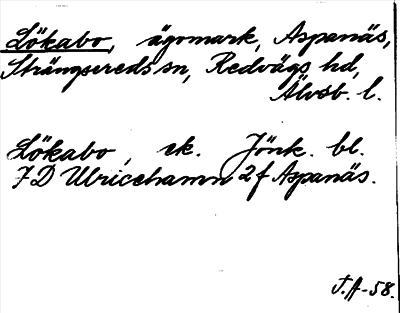 Lökabo, ägomark, Aspanäs,
Strängsereds sn, Redvägs hd,
Älvsb. l.
Lökabo, ek. Jönk. bl.
7D Ulricehamn 2f Aspanäs.
J.A-58.